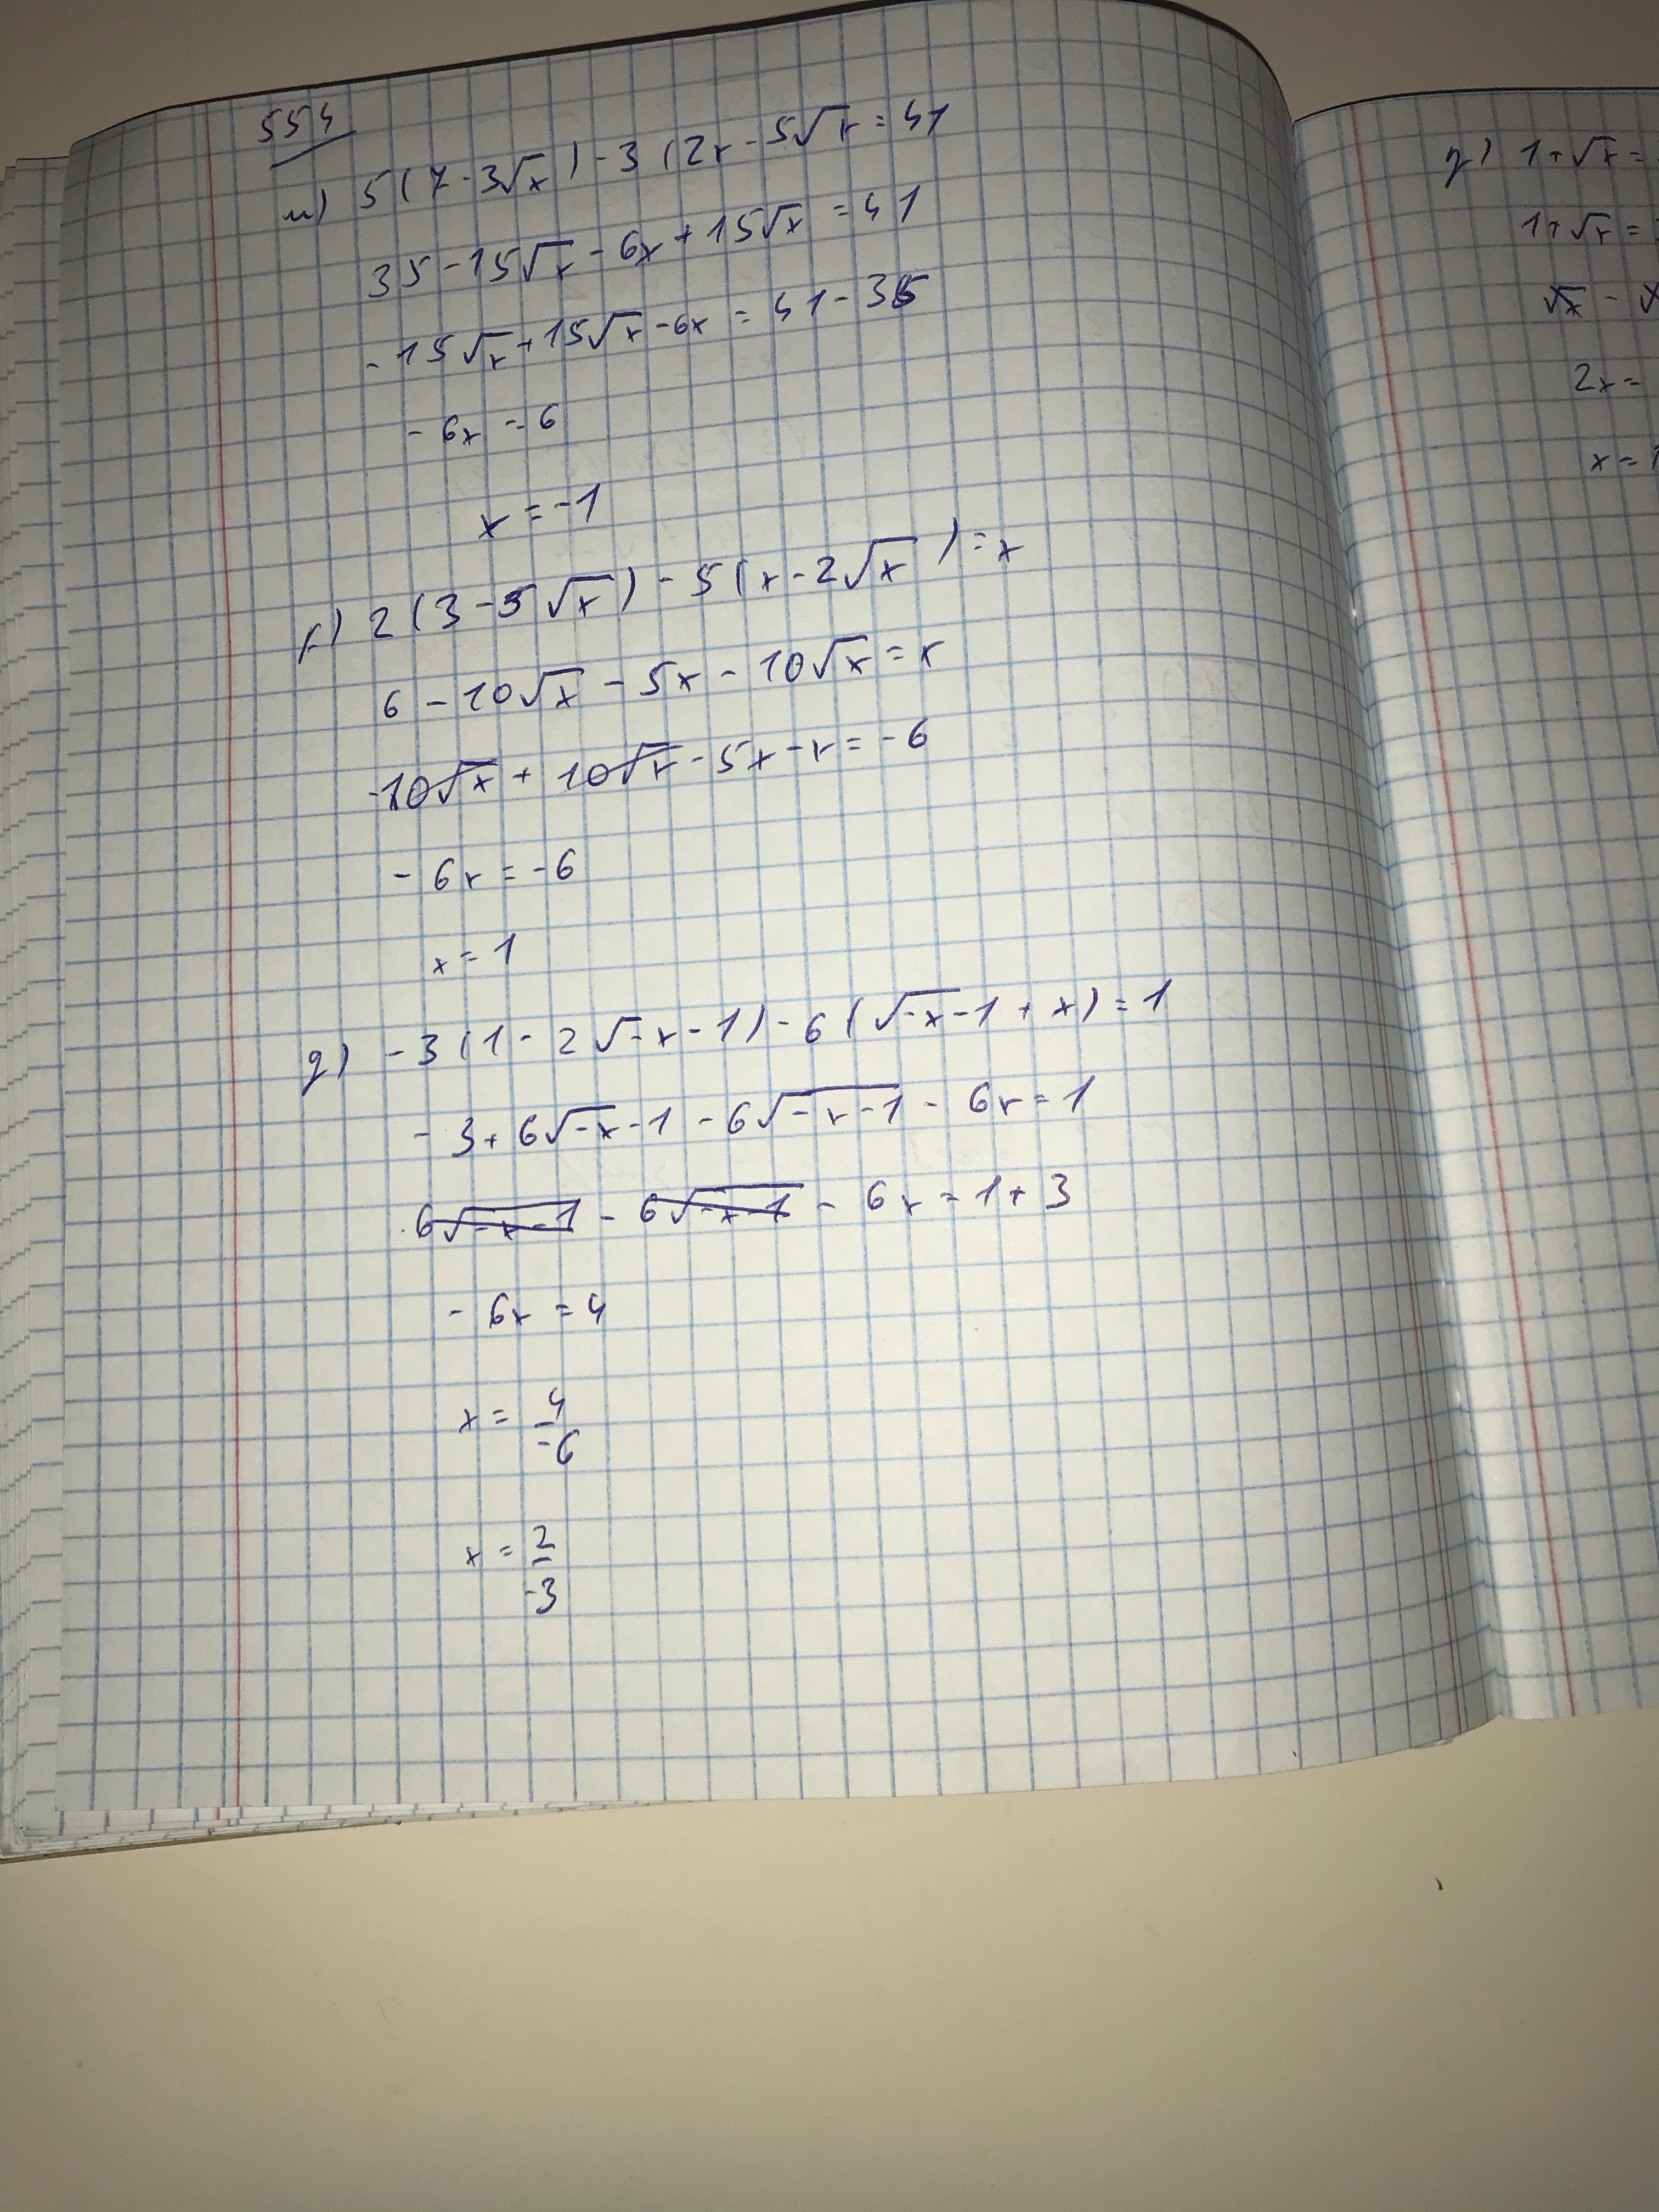 554
и) 5(7-3√x)-3(2x-5√x=41
35-15√x-6x+15√x=41
-15√x+15√x-6x=41-35
-6x=6
x=-1
г) 2(3-5√x)-5(x-2√x)=x
6-10√x-5x-10√x=x
-10√x+10√x-5x-x=-6
-6x=-6
x=1
g) -3(1-2√-x-1)-6(√-x-1+x)=1
-3+6√-x-1-6√-x-1-6x=1
6√-x-1-6√-x-1-6x=1+3
-6x=4
x=4/-6
x=2/-3
g) 1+√x=
1+√x=
√x-
2x=
x=1